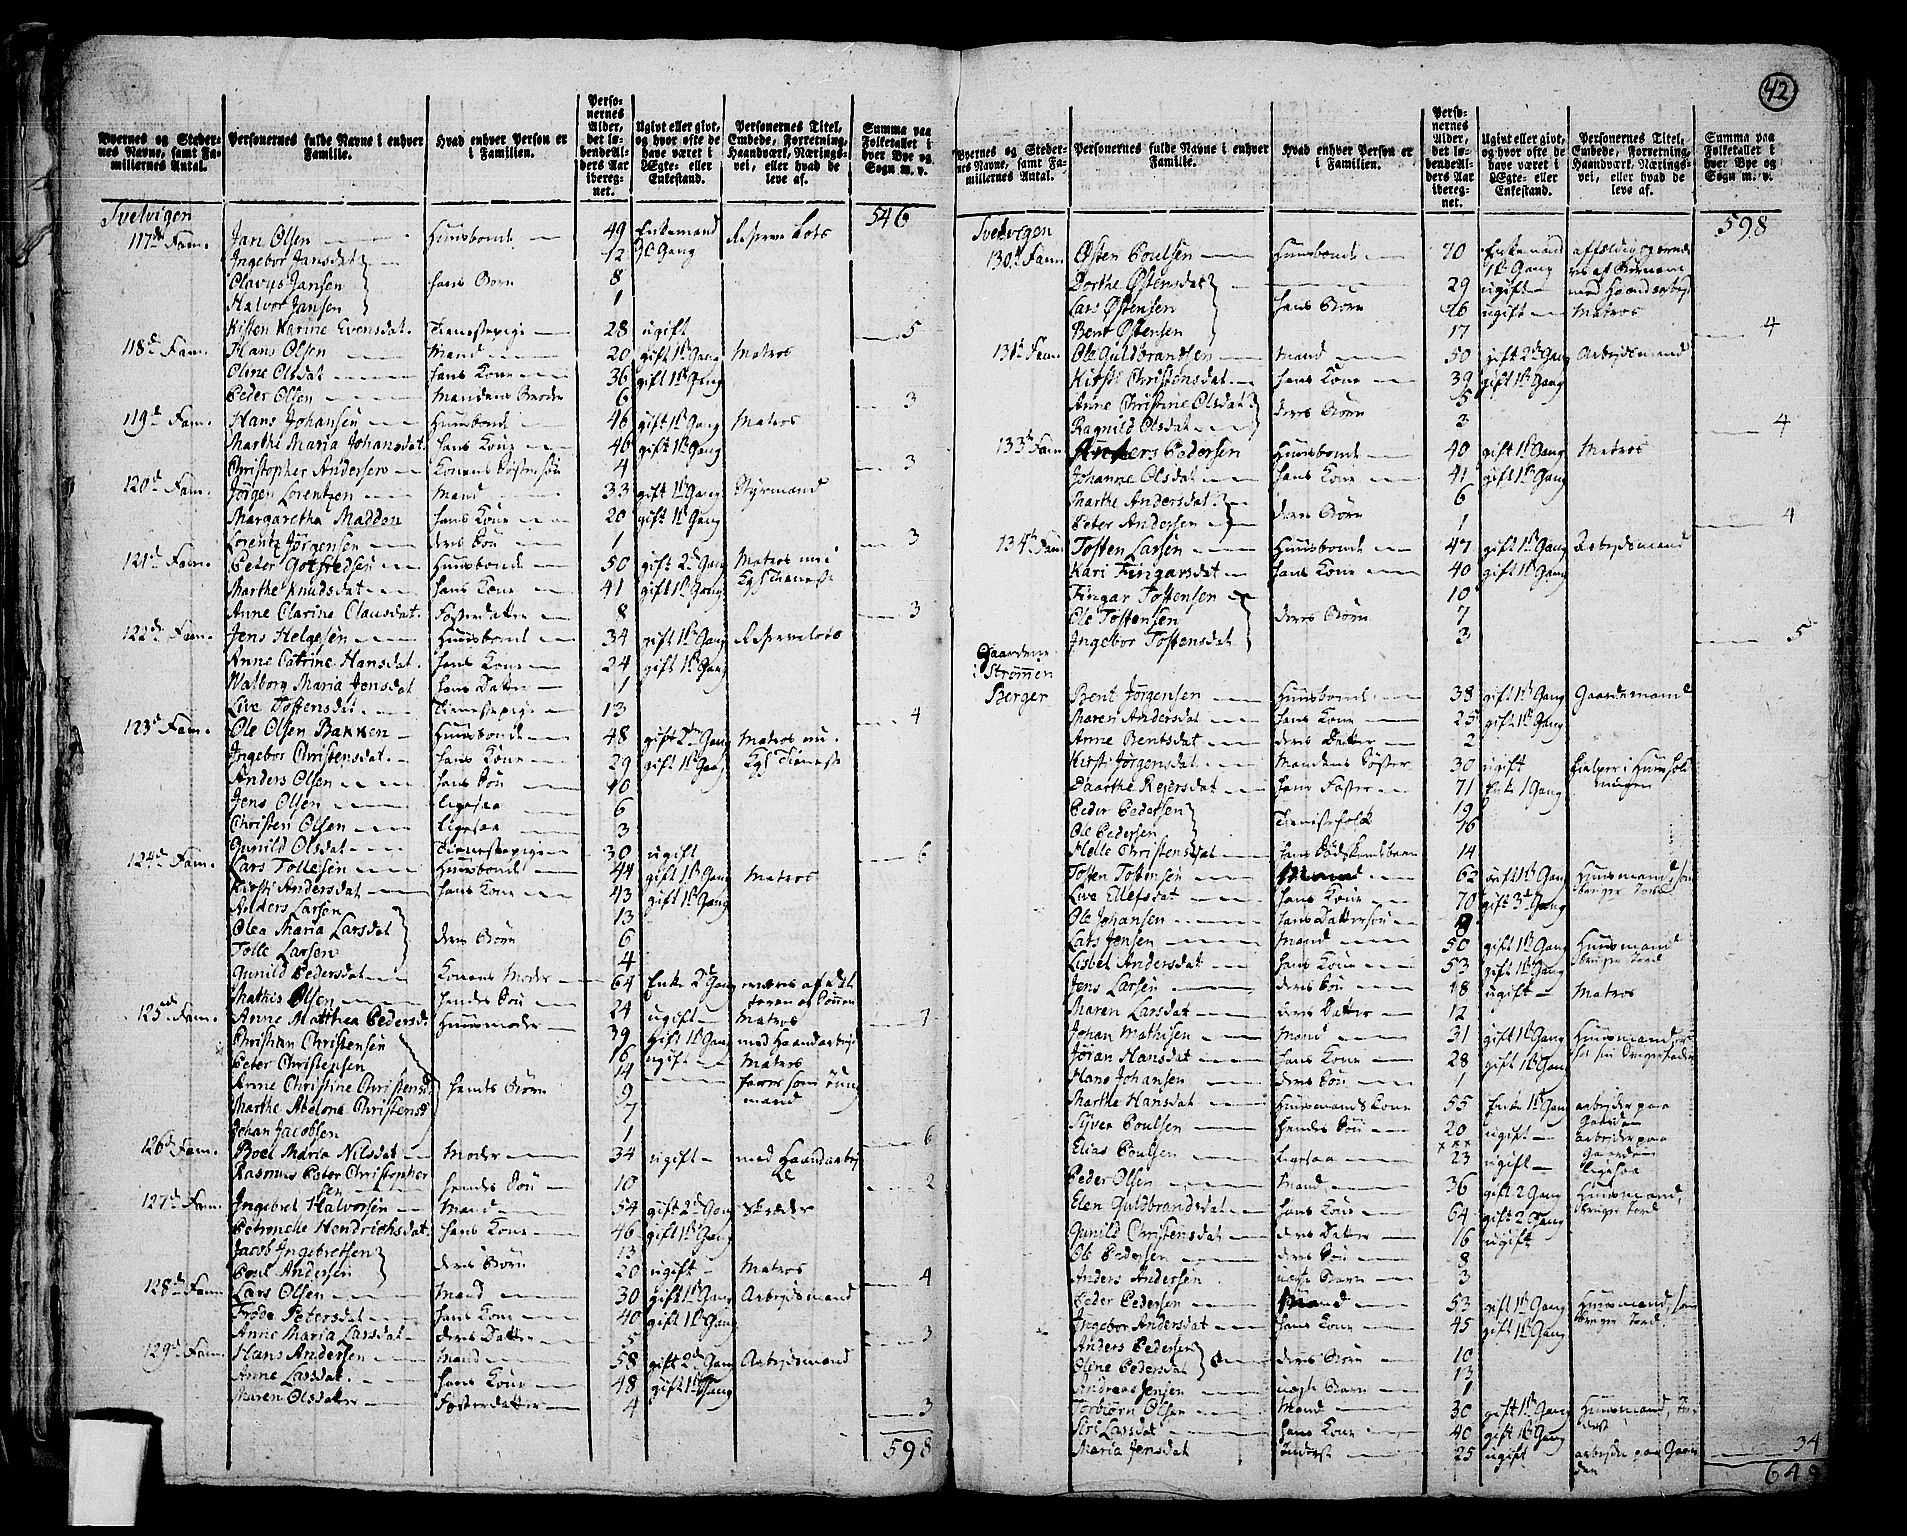 42
Byernes og Stedernes Navne, samt Familiernes Antal.
Personernes fulde Navne i enhver Familie.
Hvad enhver Person er i Familien.
Personernes Alder, det løbende Alders Aar iberegnet.
Ugivt eller givt, og hvor ofte de have været i Ægte- eller Enkestand.
Personernes Titel, Embede, Forretning, Haandværk, Næringsvei, eller hvad de leve af.
Summa paa Folketallet i hver Bye og Sogn m. v.
Svelvigen 546
117de Fam. Jan Olsen Huusbonde 49 Enkemand 2 Gang Reserve Lots
Ingebor Jansdat 12
Olavus Jansen hans Børn 8
Halvor Jansen 1
Kisten Karine Evensdat. Tienestepige 28 ugift 5
118de Fam. Hans Olsen Mand 20 gift 1ste Gang Matros
Oline Olsdat hans Kone 36 gift 1ste Gang
Peder Olsen Mandens Broder 6 3
119de Fam. Hans Johansen Huusbond 46 gift 1ste Gang Matros
Marthe Maria Johansdat. hans Kone 46 gift 1ste Gang
Christopher Andersen Konens Søstersøn 4 3
120de Fam. Jørgen Lorentzen Mand 33 gift 1ste Gang Styrmand
Margaretha Maddon hans Kone 20 gift 1ste Gang
Lorentz Jørgensen deres Søn 1 3
121de Fam. Peder Gotfredsen Huusbonde 50 gift 2den Gang Matros nu i Kgs Tieneste
Marthe Knudsdat hans Kone 41 gift 1ste Gang
Anne Clarine Clausdat. Fosterdatter 8 3
122de Fam. Jens Helgesen Huusbond 34 gift 1ste Gang Reservelods
Anne Catrine Hansdat. hans Kone 24 gift 1ste Gang
Walborg Maria Jensdat hans Datter 1
Live Tostensdat. Tienestepige 13 4
123de Fam. Ole Olsen Bakken Huusbonde 48 gift 2den Gang Matros nu i Kgs Tieneste
Ingebor Christensdat. hans Kone 29 gift 1ste Gang
Anders Olsen hans Søn 10
Jens Olsen ligesaa 6
Christen Olsen ligesaa 3
Gunild Olsdat Tienestepige 30 ugift 6
124de Fam. Lars Tollesen Huusbond 44 gift 1ste Gang Matros
Kirsti Andersdat hans Kone 43 gift 1ste Gang
Anders Larsen 13
Olea Maria Larsdat deres Børn 6
Tolle Larsen 4
Gunild Pedersdat Konens Moder 64 Enke 2den Gang
Mathis Olsen hendes Søn 24 ugift Matros 7
125de Fam. Anne Matthea Pedersd. Huusmoder 39 gift 1ste Gang med Haandarbeid
Christian Christensen 16 ugift Matros
Peter Christensen 14
Anne Christine Christensd. hendes Børn 9
Marthe Abelone Christensd 7
Johan Jacobsen 1 6
126de Fam. Boel Maria Nilsdat Moder 34 ugift med Haandarbeide
Rasmus Peter Christophersen hendes Søn 10 2
127de Fam. Ingebret Halvorsen Mand 54 gift 2den Gang Skræder
Petronelle Hendrichsdat. hans Kone 46 gift 1ste Gang
Jacob Ingebretsen 13
Poul Andersen deres Børn 20 ugift Matros 4
128de Fam. Lars Olsen Mand 30 gift 1ste Gang Arbejdsmand
Frode Petersdat hans Kone 40 gift 1ste Gang
Anne Maria Larsdat deres Datter 5 3
129de Fam. Hans Andersen Mand 58 gift 2den Gang Arbejdsmand
Anne Larsdat. hans Kone 48 gift 1ste Gang
Maren Olsdatter Fosterdatter 4 3
598
Byernes og Stedernes Navne, samt Familiernes Antal.
Personernes fulde Navne i enhver Familie.
Hvad enhver Person er i Familien.
Personernes Alder, det løbende Alders Aar iberegnet.
Ugivt eller givt, og hvor ofte de have været i Ægte- eller Enkestand.
Personernes Titel, Embede, Forretning, Haandværk, Næringsvei, eller hvad de leve af.
Summa paa Folketallet i hver Bye og Sogn m. v.
Svelvigen 598
130de Fam. Østen Poulsen Huusbonde 70 Enkemand 1ste Gang
Dorthe Østensdat 29 ugift med Haandarbejd
Lars Østensen hans Børn 26 ugift Matros
Bent Østensen 17 4
131te Fam. Ole Guldbrandsen Mand 50 gift 2den Gang Arbejdsmand
Kirsti Christensdat hans Kone 39 gift 1ste Gang
Anne Christine Olsdat deres Børn 5
Ragnild Olsdat 3 4
133te Fam. Anders Pedersen Huusbonde 40 gift 1ste Gang Matros
Johanne Olsdat hans Kone 41 gift 1ste Gang
Marthe Andersdat. 6
Peter Andersen deres Børn 1 4
134te Fam. Tosten Larsen Huusbonde 47 gift 1ste Gang Arbejdsmand
Kari Fingarsdat hans Kone 40 gift 1ste Gang
Fingar Tostensen 10
Ole Tostensen deres Børn 7
Ingebor Tostensdat 3 5
Gaardene i Strømmen
Berger Bent Jørgensen Huusbonde 38 gift 1ste Gang Gaardemand
Maren Andersdat hans Kone 25 gift 1ste Gang
Anne Bentsdat deres Datter 2
Kirsti Jørgensdat Mandens Søster 30 ugift hielper i Huusholdningen
Daarthe Rejersdat hans Faster 71 Enke 1 Gang
Peder Pedersen 19
Ole Pedersen Tienistefolk 16
Helle Christensdat 14
Tosten Tostensen Mand 62 gift 1ste Gang
Live Ellefsdat hans Kone 70 gift 3die Gang
Ole Johansen hans Dattersøn 8
Lars Jensen Mand 50 gift 1ste Gang Huusmand bruger Jord
Lisbet Andersdat hans Kone 53 gift 1ste Gang
Jens Larsen deres Søn 18 ugift Matros
Maren Larsdat deres Datter 12
Johan Mathisen Mand 31 gift 1ste Gang
Jøran Hansdat hans Kone 28 gift 1ste Gang
Hans Johansen deres Søn 1
Marthe Hansdat Huusmands Kone 55 Enke 1ste Gang arbejder paa Gaarden
Syver Poulsen hendes Søn 20 ugift arbejder paa Gaarden
Elias Poulsen ligesaa 23 ugift ligesaa
Peder Olsen Mand 36 gift 2 Gang Huusmand, bruger Jord
Elen Guldbrandsdat hans Kone 64 gift 2 Gang
Gunild Christensdat deres Datter 16 ugift
Ole Pedersen deres Søn 8
Anders Andersen 3
Peder Pedersen Mand 53 gift 1ste Gang
Ingebor Andersdat hans Kone 45 gift 1ste Gang
Anders Pedersen 10
Oline Pedersdat deres Børn 13
Andreas Jensen 1
Torbiørn Olsen Mand 30 gift 1ste Gang
Siri Larsdat hans Kone 40 gift 1ste Gang
Maria Jensdat 25 ugift arbejder paa Gaarden 34
649